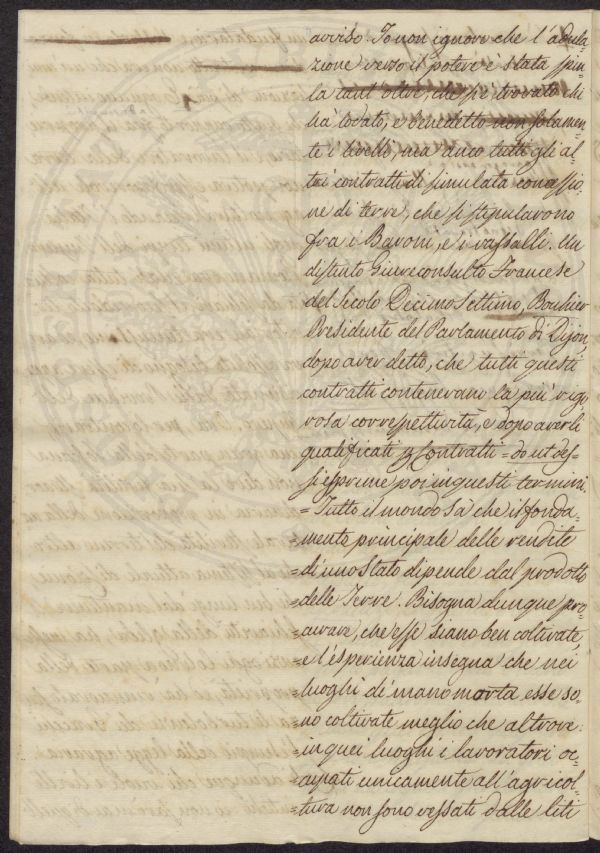 avviso. Io non ignoro che l'adula=
zione verso il potere è stata spin=
ta tant'oltre, che si è trovato chi
ha lodato, e benedetto non solamen=
te i livelli, ma anco tutti gli al=
tri contratti di simulata concessio=
ne di terre, che si stipulavono
fra i Baroni, e i vassalli. Un
distinto Giureconsulto Francese
del Secolo Decimo Settimo, Bouhier
Presidente del Parlamento di Dijon,
dopo aver detto, che tutti questi
contratti contenevano la più rigo=
rosa correspettività, e dopo averli
qualificati p contratti = do ut des=
si esprime poi in questi termini.
= Tutto il mondo sà che il fonda=
=mento principale delle rendite
=di uno Stato dipende dal prodotto
=delle Terre. Bisogna dunque pro=
=curare, che esse siano ben coltivate,
=e l'esperienza insegna che nei
=luoghi di mano morta esse so=
=no coltivate meglio che altrove:
=in quei luoghi i lavoratori oc=
=cupati unicamente all'agricol=
=tura non sono vessati dalle liti